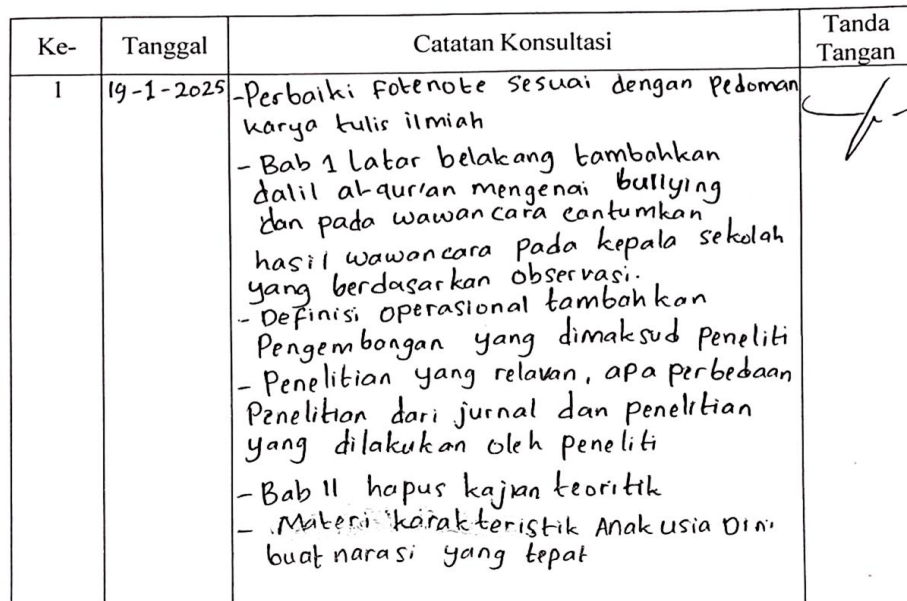 Ke- Tanggal Catatan Konsultasi Tanda Tangan
1 19-1-2025 -Perbaiki Fotenote sesuai dengan Pedoman
karya tulis ilmiah
- Bab 1 Latar belakang tambahkan
dalil al-qur'an mengenai bullying
dan pada wawancara cantumkan
hasil wawancara pada kepala sekolah
yang berdasarkan observasi.
- Definisi operasional tambahkan
Pengembangan yang dimaksud Peneliti
- Penelitian yang relavan, apa perbedaan
Penelitian dari jurnal dan penelitian
yang dilakukan oleh peneliti
- Bab II hapus kajian teoritik
- Materi karakteristik Anak usia Dini
buat narasi yang tepat